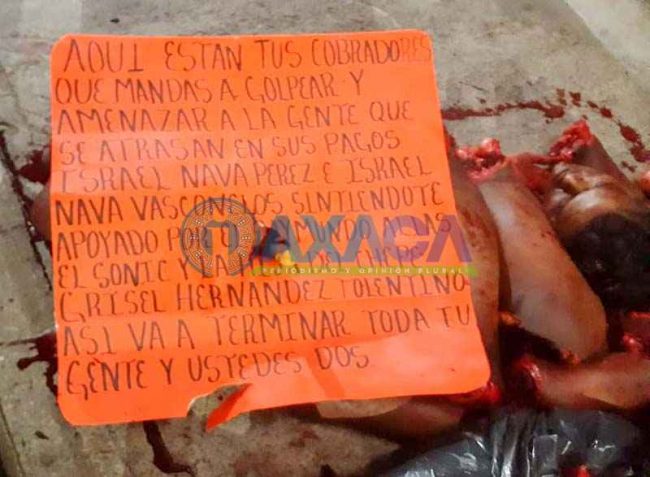 AQUI ESTAN TUS COBRADORES
QUE MANDAS A GOLPEAR Y
AMENAZAR A LA GENTE QUE
SE ATRASAN EN SUS PAGOS
ISRAEL NAVA PEREZ E ISRAEL
NAVA VASCONSLOS SINTIENDOTE
APOYADO POR
EL SONIC Y
GRISEL HERNANDEZ TOLENTINO
ASI VA A TERMINAR TODA TU
GENTE Y USTEDES DOS
OAXACA
PERIODISMO Y OPINIÓN PLURAL